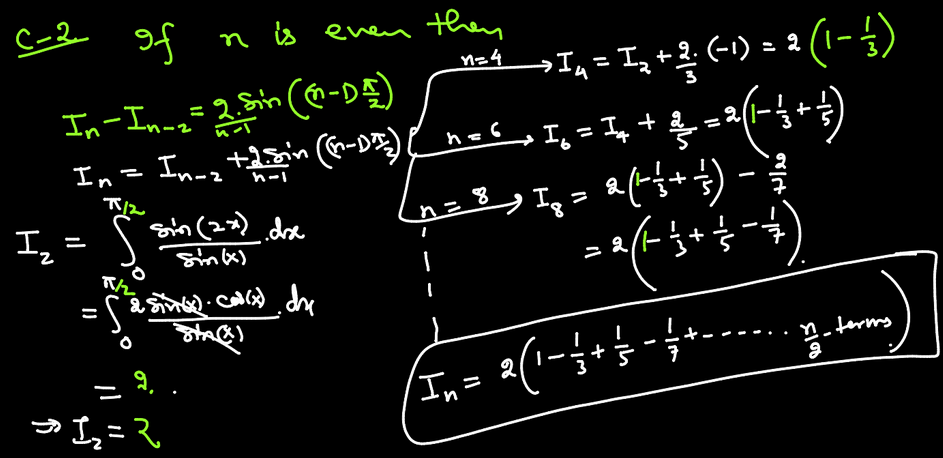 C-2 If n is even then
I_n - I_{n-2} = \frac{2}{n-1} \cdot sin((n-1)\frac{π}{2})
I_n = I_{n-2} + \frac{2}{n-1} \cdot sin((n-1)\frac{π}{2})
I_2 = \int_0^{π/2} \frac{sin(2x)}{sin(x)} \cdot dx
= \int_0^{π/2} \frac{2 sin(x) \cdot cos(x)}{sin(x)} \cdot dx
= 2.
⇒ I_2 = 2
n=4 → I_4 = I_2 + \frac{2}{3} \cdot (-1) = 2(1 - \frac{1}{3})
n=6 → I_6 = I_4 + \frac{2}{5} = 2(1 - \frac{1}{3} + \frac{1}{5})
n=8 → I_8 = 2(1 - \frac{1}{3} + \frac{1}{5}) - \frac{2}{7}
= 2(1 - \frac{1}{3} + \frac{1}{5} - \frac{1}{7}).
I_n = 2(1 - \frac{1}{3} + \frac{1}{5} - \frac{1}{7} + ------.. \frac{n}{2} - terms.)